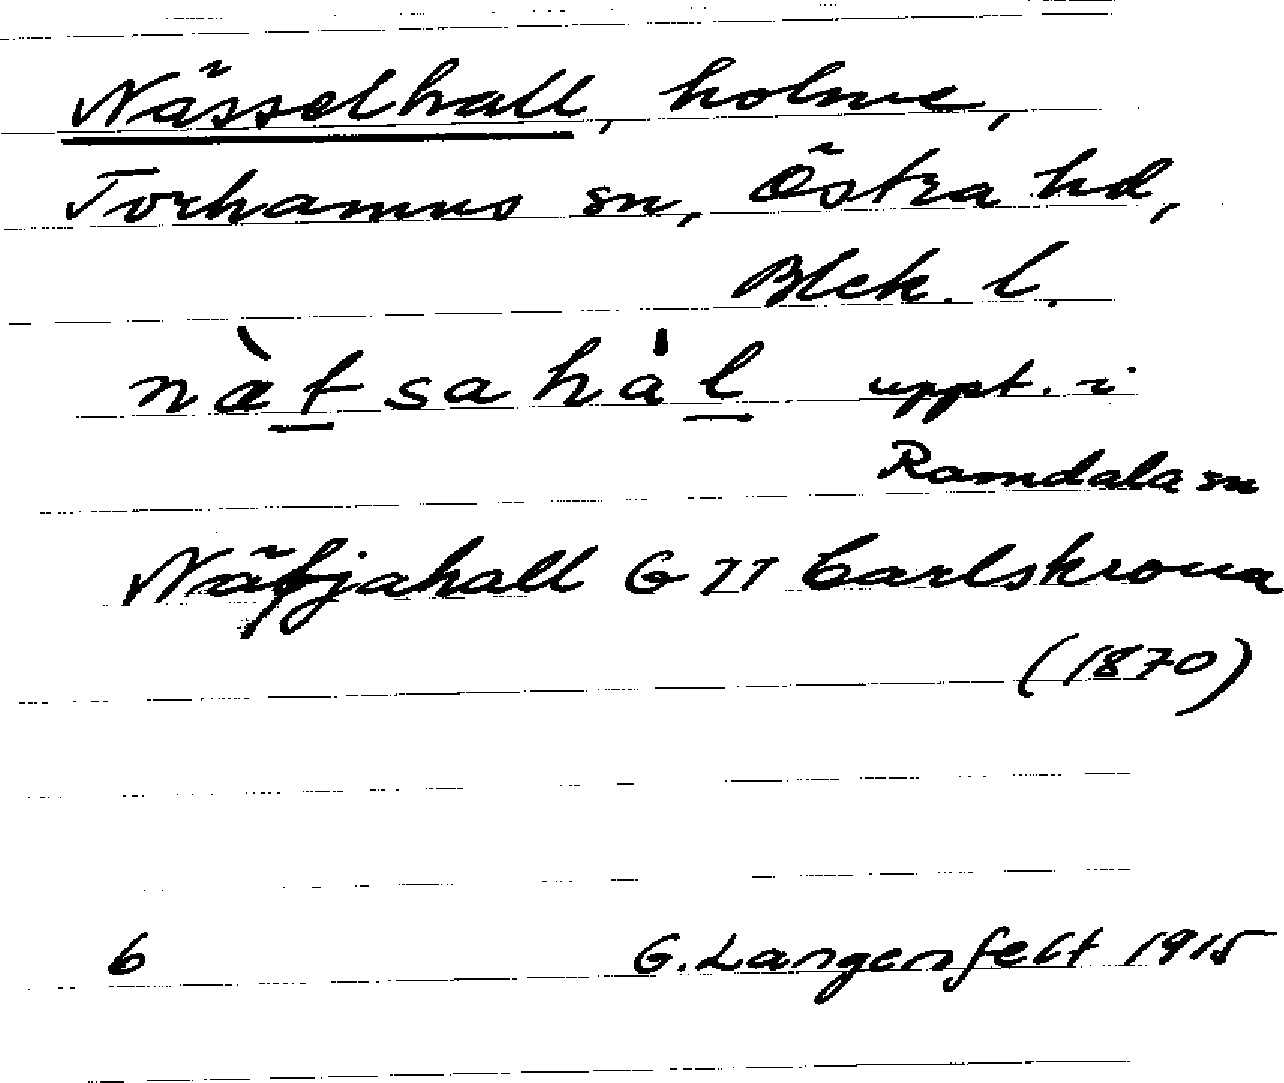 Nässelhall, holme,
Torhamns sn, Östra hd,
Blek. l.
nætsahal uppt. i
Ramdala sn
Näfjahall G 77 Carlskrona
(1870)
6 G. Langenfelt 1915